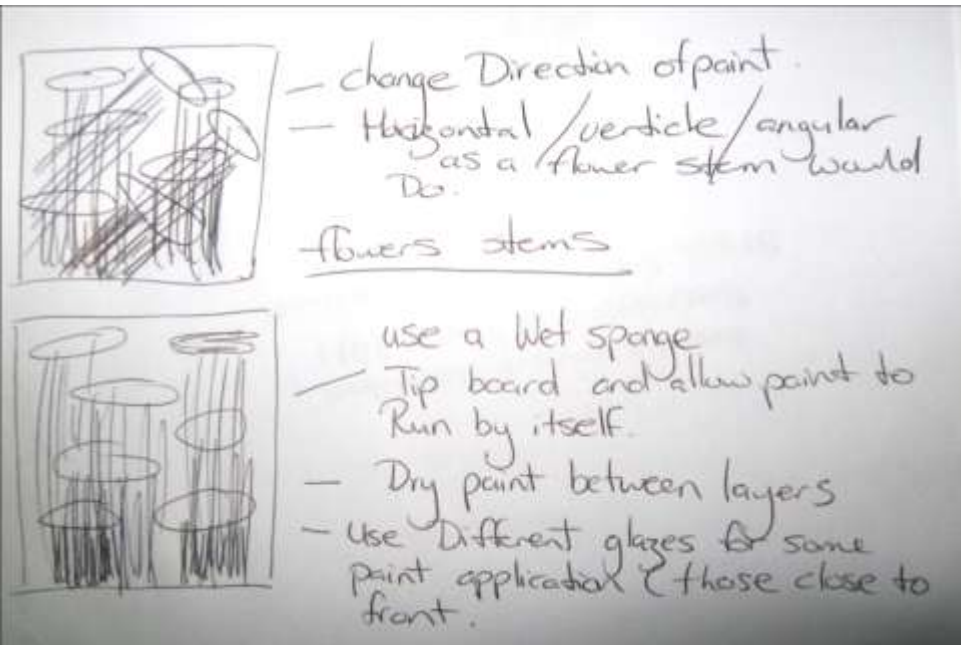 - change Direction of paint.
- Horizontal / verticle / angular
as a flower stem would
Do.
flowers stems
use a Wet sponge
- Tip board and allow paint to
Run by itself.
- Dry paint between layers
- Use Different glazes for some
paint application & those close to
front.